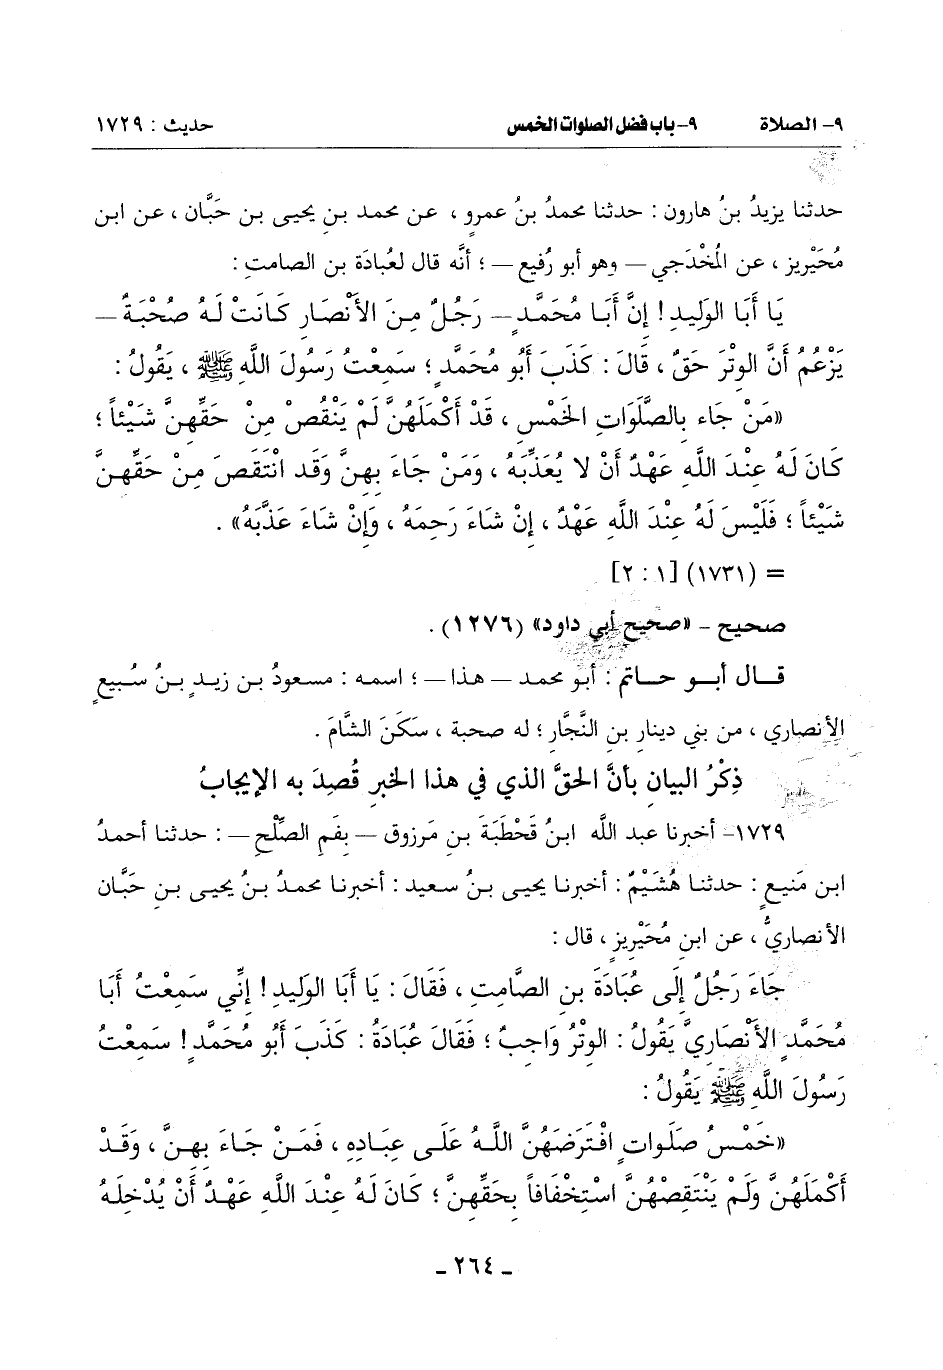 ٩- الصلاة ٩- باب فضل الصلوات الخمس حديث : ١٧٢٩
حدثنا يزيدُ بنُ هارون : حدثنا محمدُ بنُ عمرٍو ، عن محمد بن يحيى بن حَبَّان ، عن ابن
مُحَيْرِيز ، عن المُخْدَجي – وهو أبو رُفيع – ؛ أنَّه قال لعُبادَة بن الصامتِ :
يَا أَبَا الوَلِيدِ ! إِنَّ أَبَا مُحَمَّدٍ – رَجُلٌ مِنَ الأَنْصَارِ كَانَتْ لَهُ صُحْبَةٌ –
يَزْعُمُ أَنَّ الوِتْرَ حَقٌّ ، قَالَ : كَذَبَ أَبُو مُحَمَّدٍ ؛ سَمِعْتُ رَسُولَ اللَّهِ ﷺ ، يَقُولُ :
«مَنْ جَاء بالصَّلَوَاتِ الخَمْسِ ، قَدْ أَكْمَلَهُنَّ لَمْ يَنْقُصْ مِنْ حَقِّهِنَّ شَيْئاً ؛
كَانَ لَهُ عِنْدَ اللَّهِ عَهْدٌ أَنْ لا يُعَذِّبَهُ ، وَمَنْ جَاءَ بِهِنَّ وَقَد انْتَقَصَ مِنْ حَقِّهِنَّ
شَيْئاً ؛ فَلَيْسَ لَهُ عِنْدَ اللَّهِ عَهْدٌ ، إِنْ شَاءَ رَحِمَهُ ، وَإِنْ شَاءَ عَذَّبَهُ» .
= (١٧٣١) [١ : ٢]
صحيح - «صحيح أبي داود» (١٢٧٦) .
قـال أبـو حـاتم : أبو محمد – هذا – ؛ اسمه : مسعودُ بن زيدِ بنُ سُبيعٍ
الأنصاري ، من بني دينار بن النَّجَّار ؛ له صحبة ، سَكَنَ الشَّامَ .
ذِكْرُ البيان بأنَّ الحقَّ الذي في هذا الخبر قُصِدَ به الإيجابُ
١٧٢٩- أخبرنا عبد الله ابنُ قَحْطَبَةَ بن مَرزوق – بِفَمِ الصِّلْحِ – : حدثنا أحمدُ
ابن مَنيعٍ : حدثنا هُشَيْمٌ : أخبرنا يحيى بنُ سعيد : أخبرنا محمدُ بنُ يحيى بنِ حَبَّان
الأنصاريُّ ، عن ابنِ مُحَيْرِيزٍ ، قال :
جَاءَ رَجُلٌ إِلَى عُبَادَةَ بنِ الصَّامتِ ، فَقَالَ : يَا أَبَا الوَلِيدِ ! إِنِّي سَمِعْتُ أَبَا
مُحَمَّدٍ الأَنْصَارِيَّ يَقُولُ : الوِتْرُ وَاجِبٌ ؛ فَقَالَ عُبَادَةُ : كَذَبَ أَبُو مُحَمَّدٍ ! سَمِعْتُ
رَسُولَ اللَّهِ ﷺ يَقُولُ :
«خَمْسُ صَلَواتٍ افْتَرَضَهُنَّ اللَّـهُ عَلَـى عِبَـادِهِ ، فَمَـنْ جَـاءَ بِهِنَّ ، وَقَدْ
أَكْمَلَهُنَّ وَلَمْ يَنْتَقِصْهُنَّ اسْتِخْفَافاً بِحَقِّهِنَّ ؛ كَانَ لَهُ عِنْدَ اللَّهِ عَهْدٌ أَنْ يُدْخِلَهُ
- ٢٦٤ -